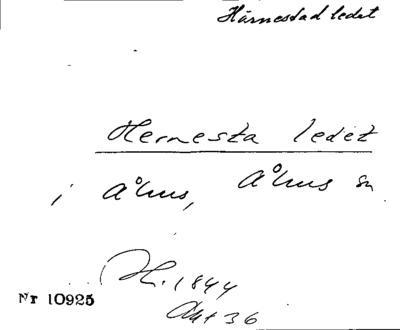 Härnestad ledet
Hernesta ledet
i Åhus, Åhus sn
H. 1844
Akt 36
Nr 10925